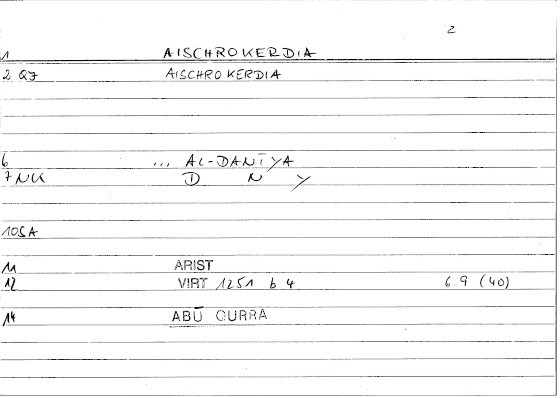 2
1 AISCHROKERDIA
2 QJ AISCHROKERDIA
6 ... AL-DANĪYA
7 NK D N Y
10 SA
11 ARIST
12 VIRT 1251 b 4 6 9 (40)
14 ABŪ QURRA